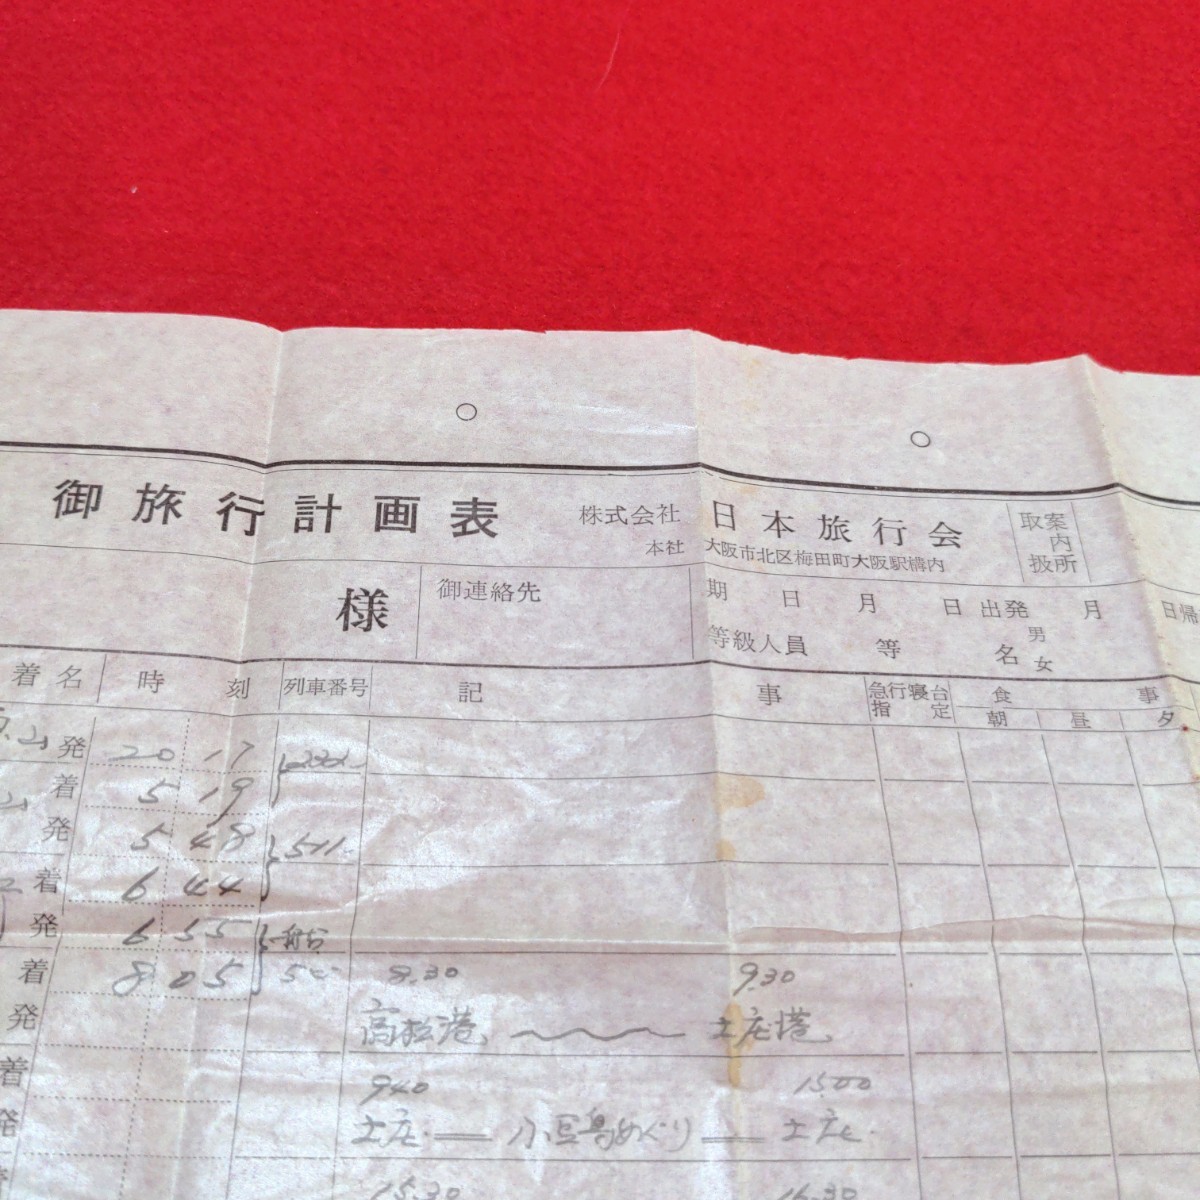 御旅行計画表 株式会社 日本旅行会 取扱 案内所
本社 大阪市北区梅田町大阪駅構内
様 御連絡先 期 日 月 日 出発 月 日帰
等級人員 等 名 男 女
着名 時 刻 列車番号 記 事 急行寝台指定 食 事
朝 昼 夕
発 20 17
着 5 19
発 5 48 511
着 6 44
発 6 55
着 8 05 8.30 9.30
発 高松港 土庄港
着 940 15.00
発 土庄 小豆島めぐり 土庄
15.30 16.30